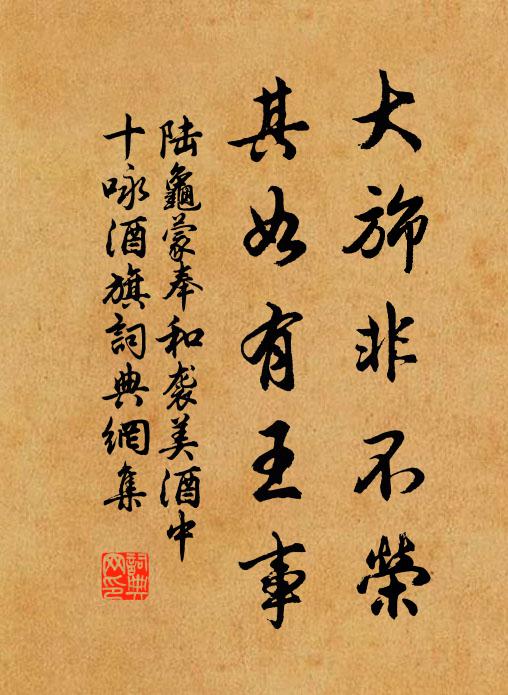 大旆非不榮
其如有王事
陆龜蒙奉和袭美酒中
十咏酒旗詞典網集
詞典
网印